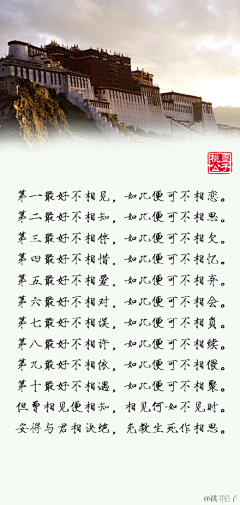 第一最好不相见，如此便可不相恋。
第二最好不相知，如此便可不相思。
第三最好不相伴，如此便可不相欠。
第四最好不相惜，如此便可不相忆。
第五最好不相爱，如此便可不相弃。
第六最好不相对，如此便可不相会。
第七最好不相误，如此便可不相负。
第八最好不相许，如此便可不相续。
第九最好不相依，如此便可不相偎。
第十最好不相遇，如此便可不相聚。
但曾相见便相知，相见何如不见时。
安得与君相决绝，免教生死作相思。